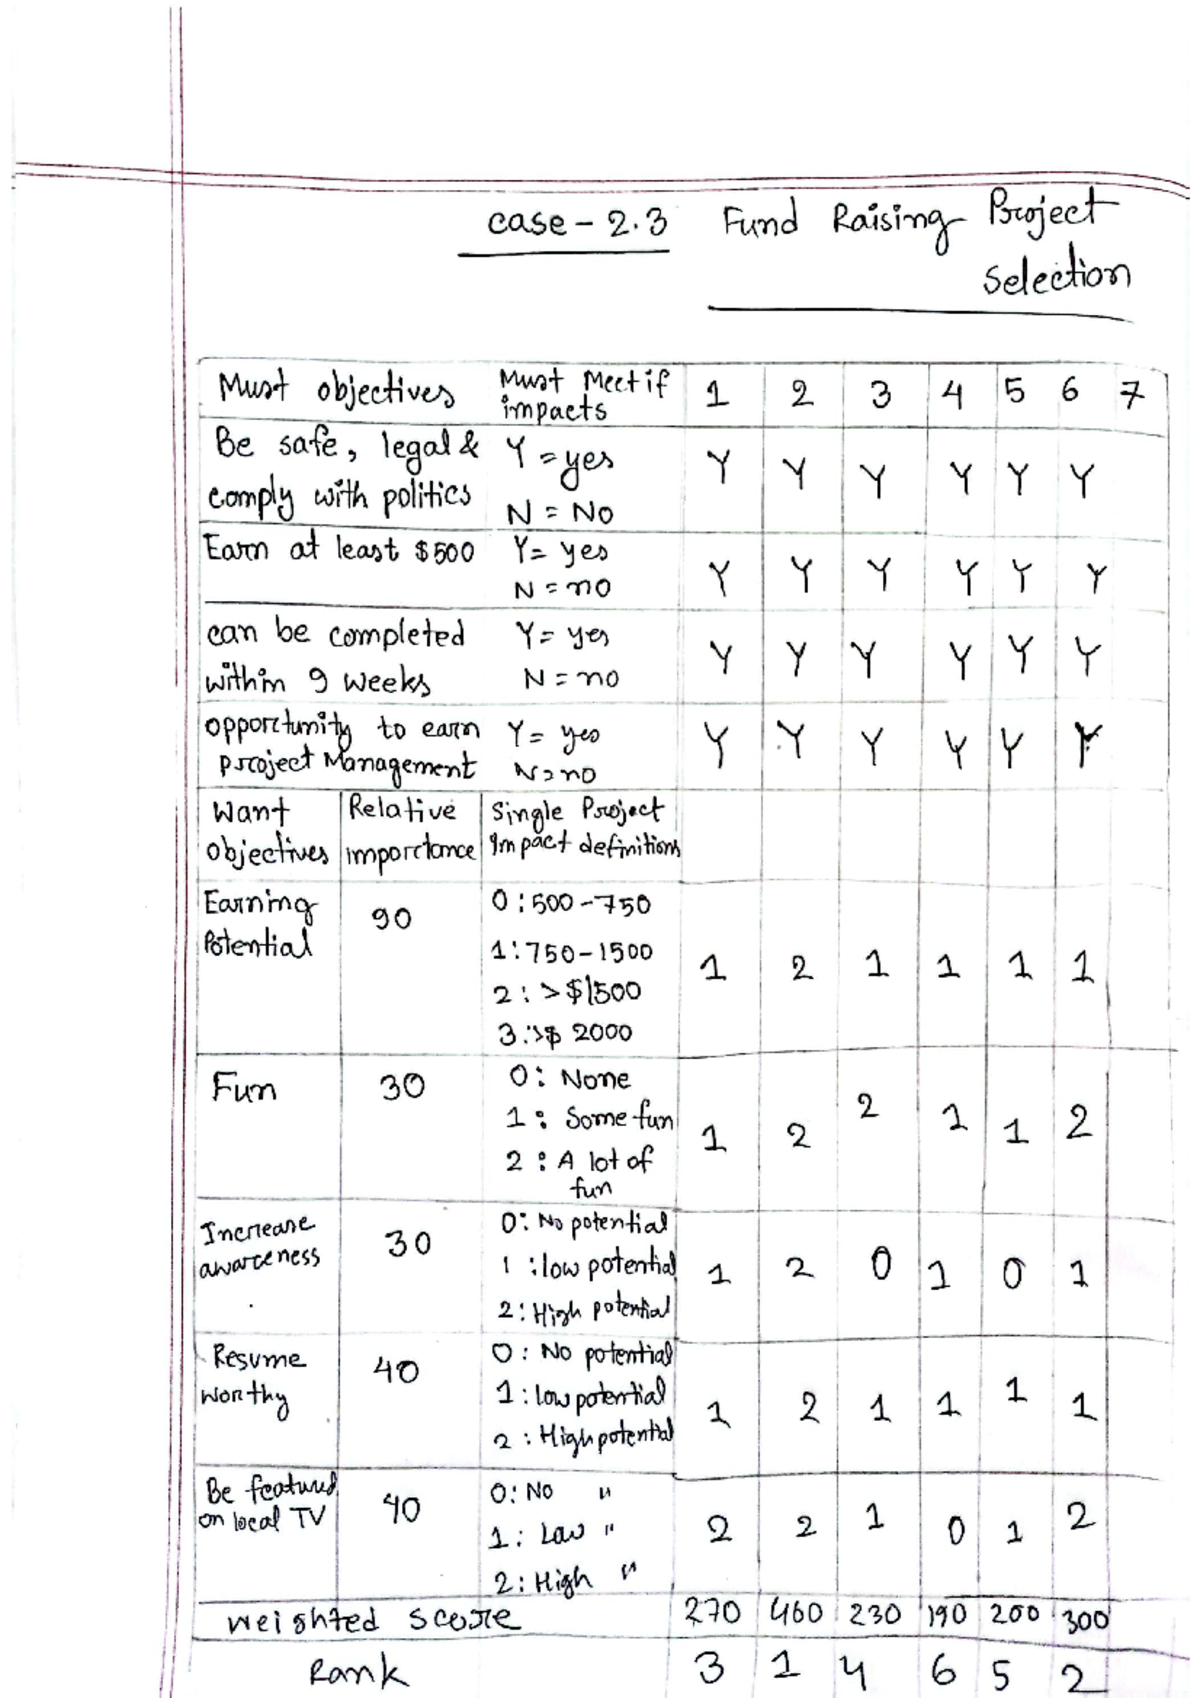 case - 2.3 Fund Raising Project
Selection
Must objectives Must Meet if impacts 1 2 3 4 5 6 7
Be safe, legal & comply with politics Y = yes N = No Y Y Y Y Y Y
Earn at least $500 Y = yes N = no Y Y Y Y Y Y
can be completed within 9 weeks Y = yes N = no Y Y Y Y Y Y
opportunity to earn project Management Y = yes N = no Y Y Y Y Y Y
Want objectives Relative importance Single Project Impact definitions
Earning Potential 90 0 : 500 - 750
1 : 750 - 1500 1 2 1 1 1 1
2 : > $1500
3 : >$ 2000
Fun 30 0 : None
1 : Some fun 1 2 2 1 1 2
2 : A lot of fun
Increase awareness 30 0 : No potential
1 : low potential 1 2 0 1 0 1
2 : High potential
Resume worthy 40 0 : No potential
1 : low potential 1 2 1 1 1 1
2 : High potential
Be featured on local TV 40 0 : No "
1 : Law " 2 2 1 0 1 2
2 : High "
Weighted score 270 460 230 190 200 300
Rank 3 1 4 6 5 2